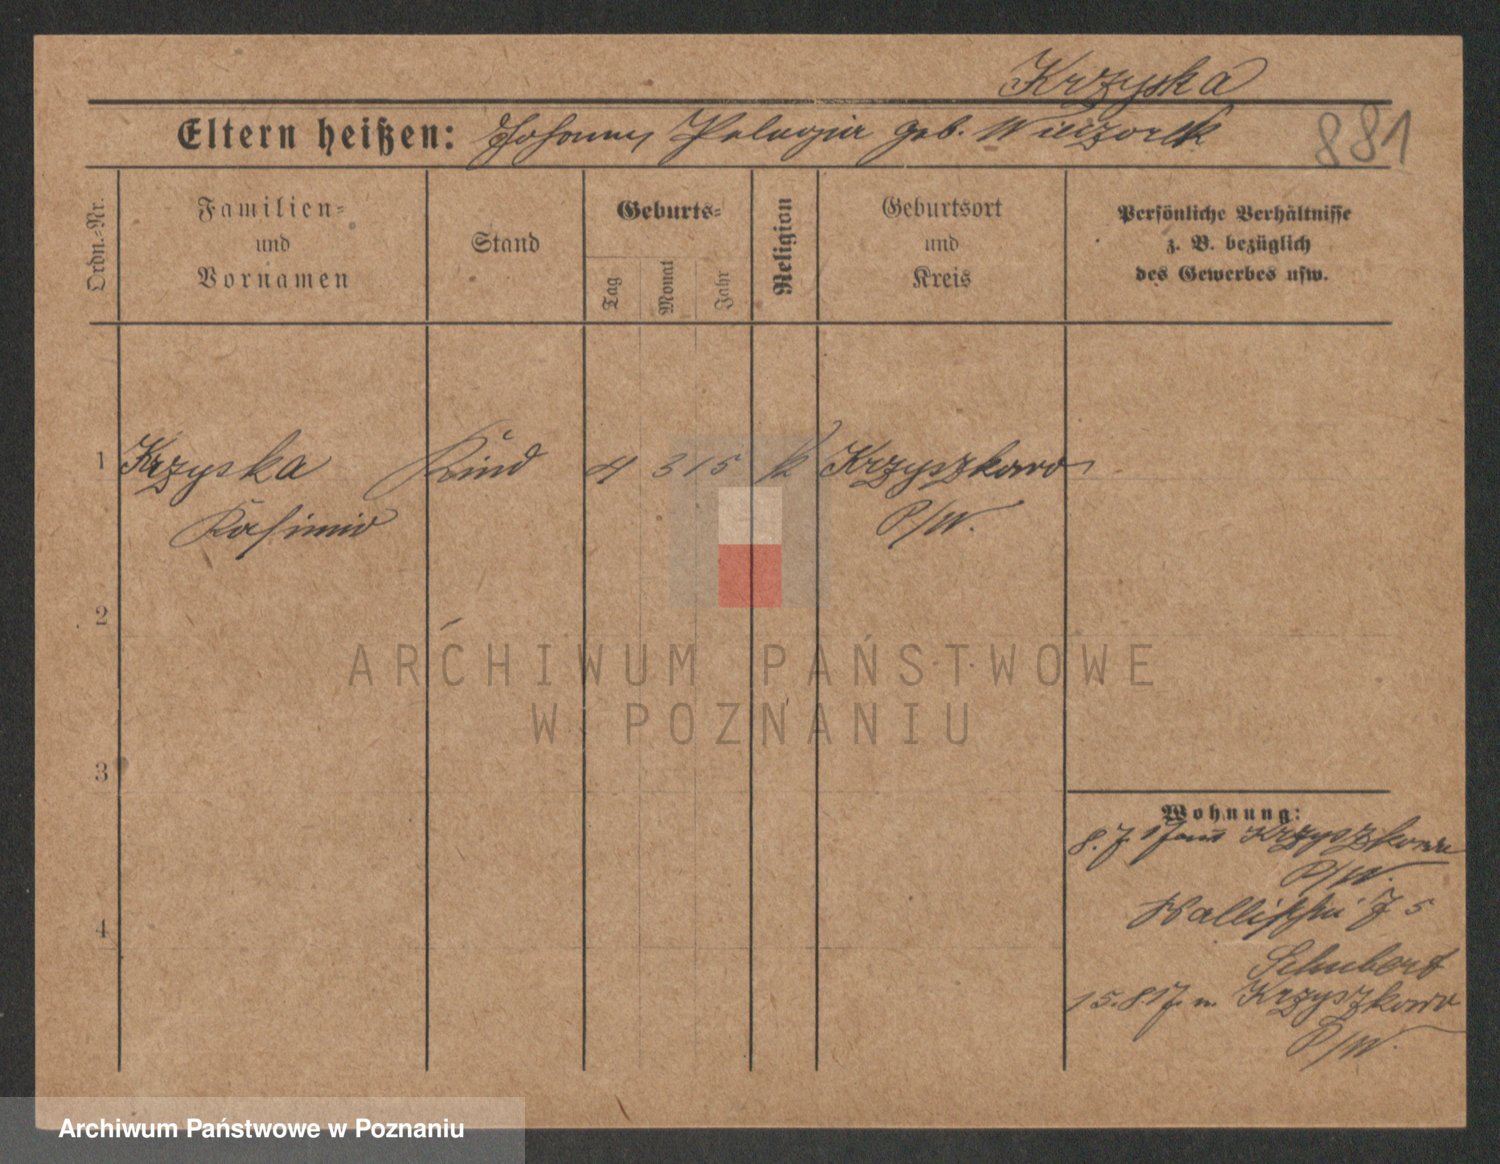 Krzyska
Eltern heißen: Johann, Pelagia geb. Wieczorek
881
Ordn.-Nr.
Familien-
und
Vornamen
Stand
Geburts-
Tag
Monat
Jahr
Religion
Geburtsort
und
Kreis
Persönliche Verhältnisse
z. B. bezüglich
des Gewerbes usw.
1 Krzyska Kind 4 3 15 k Krzyszkowo
Kasimir P/W.
2
3
4
Wohnung:
8.7.17 aus Krzyszkowo
P/W.
Wallischei 75
Schubert
15.8.17. n. Krzyszkowo
P/W.
ARCHIWUM PAŃSTWOWE
W POZNANIU
Archiwum Państwowe w Poznaniu